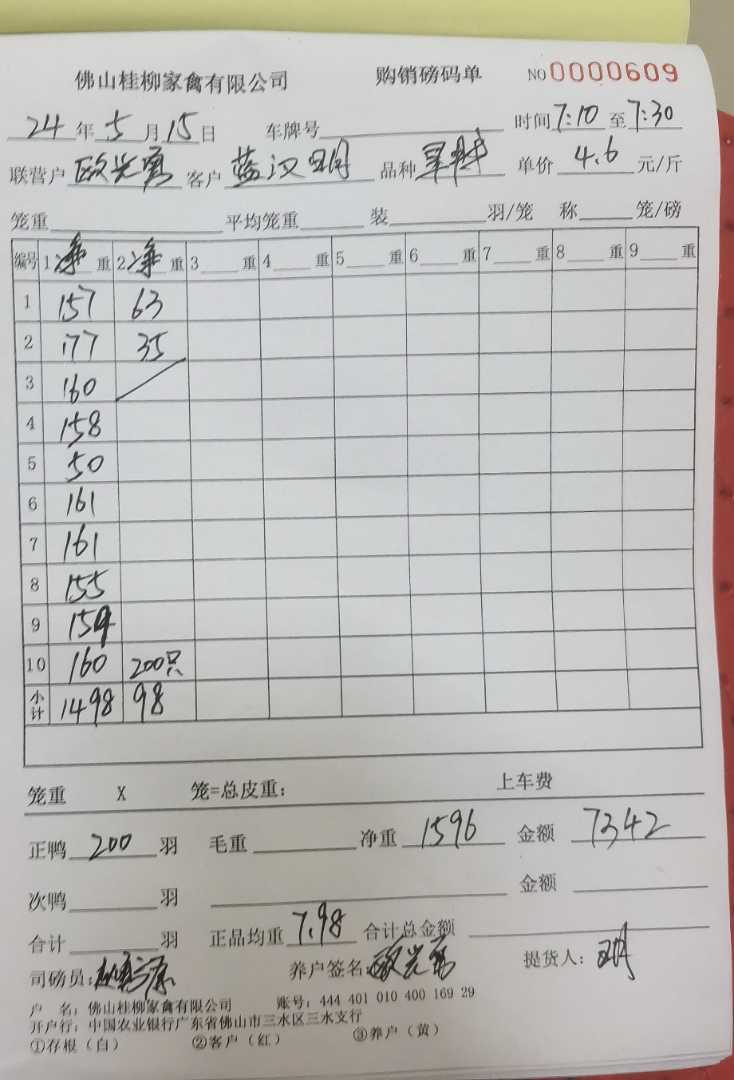 佛山桂柳家禽有限公司 购销磅码单 NO 0000609
24 年 5 月 15 日 车牌号 时间 7:10 至 7:30
联营户 欧兴勇 客户 蓝汉明 品种 单价 4.6 元/斤
笼重 平均笼重 装 羽/笼 称 笼/磅
编号 1 净 重 2 净 重 3 重 4 重 5 重 6 重 7 重 8 重 9 重
1 157 63
2 177 35
3 160
4 158
5 50
6 161
7 161
8 155
9 159
10 160 200只
小计 1498 98
笼重 X 笼=总皮重: 上车费
正鸭 200 羽 毛重 净重 1596 金额 7342
次鸭 羽 金额
合计 羽 正品均重 7.98 合计总金额
司磅员: 养户签名: 欧兴勇 提货人: 明
户 名: 佛山桂柳家禽有限公司 账号: 444 401 010 400 169 29
开户行: 中国农业银行广东省佛山市三水区三水支行
①存根(白) ②客户(红) ③养户(黄)